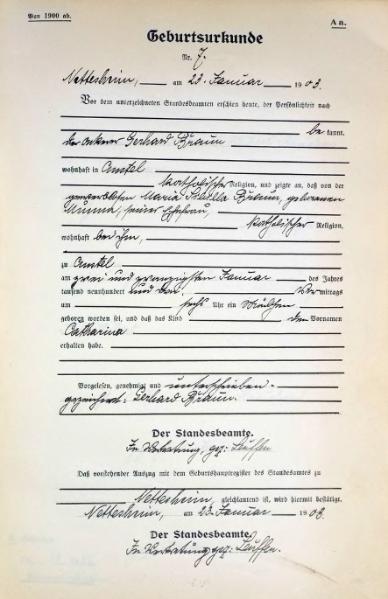 Von 1900 ab.
A n.
Geburtsurkunde
Nr. 7.
Nettesheim, am 23. Januar 1903.
Vor dem unterzeichneten Standesbeamten erschien heute, der Persönlichkeit nach
be kannt,
der Ackerer Gerhard Braun
wohnhaft in Anstel
katholischer Religion, und zeigte an, daß von der
gewerblosen Maria Sibilla Braun, geborenen
seiner Ehefrau,
katholischer Religion,
wohnhaft bei ihm,
zu Anstel
am zwei und zwanzigsten Januar des Jahres
tausend neunhundert und drei Vormittags
um sechs Uhr ein Mädchen
geboren worden sei, und daß das Kind den Vornamen
Catharina
erhalten habe.
Vorgelesen, genehmigt und unterschrieben
gezeichnet: Gerhard Braun.
Der Standesbeamte.
In Vertretung, gez:
Daß vorstehender Auszug mit dem Geburtshauptregister des Standesamtes zu
Nettesheim, gleichlautend ist, wird hiermit bestätigt.
Nettesheim, am 23. Januar 1903.
Der Standesbeamte.
In Vertretung gez: